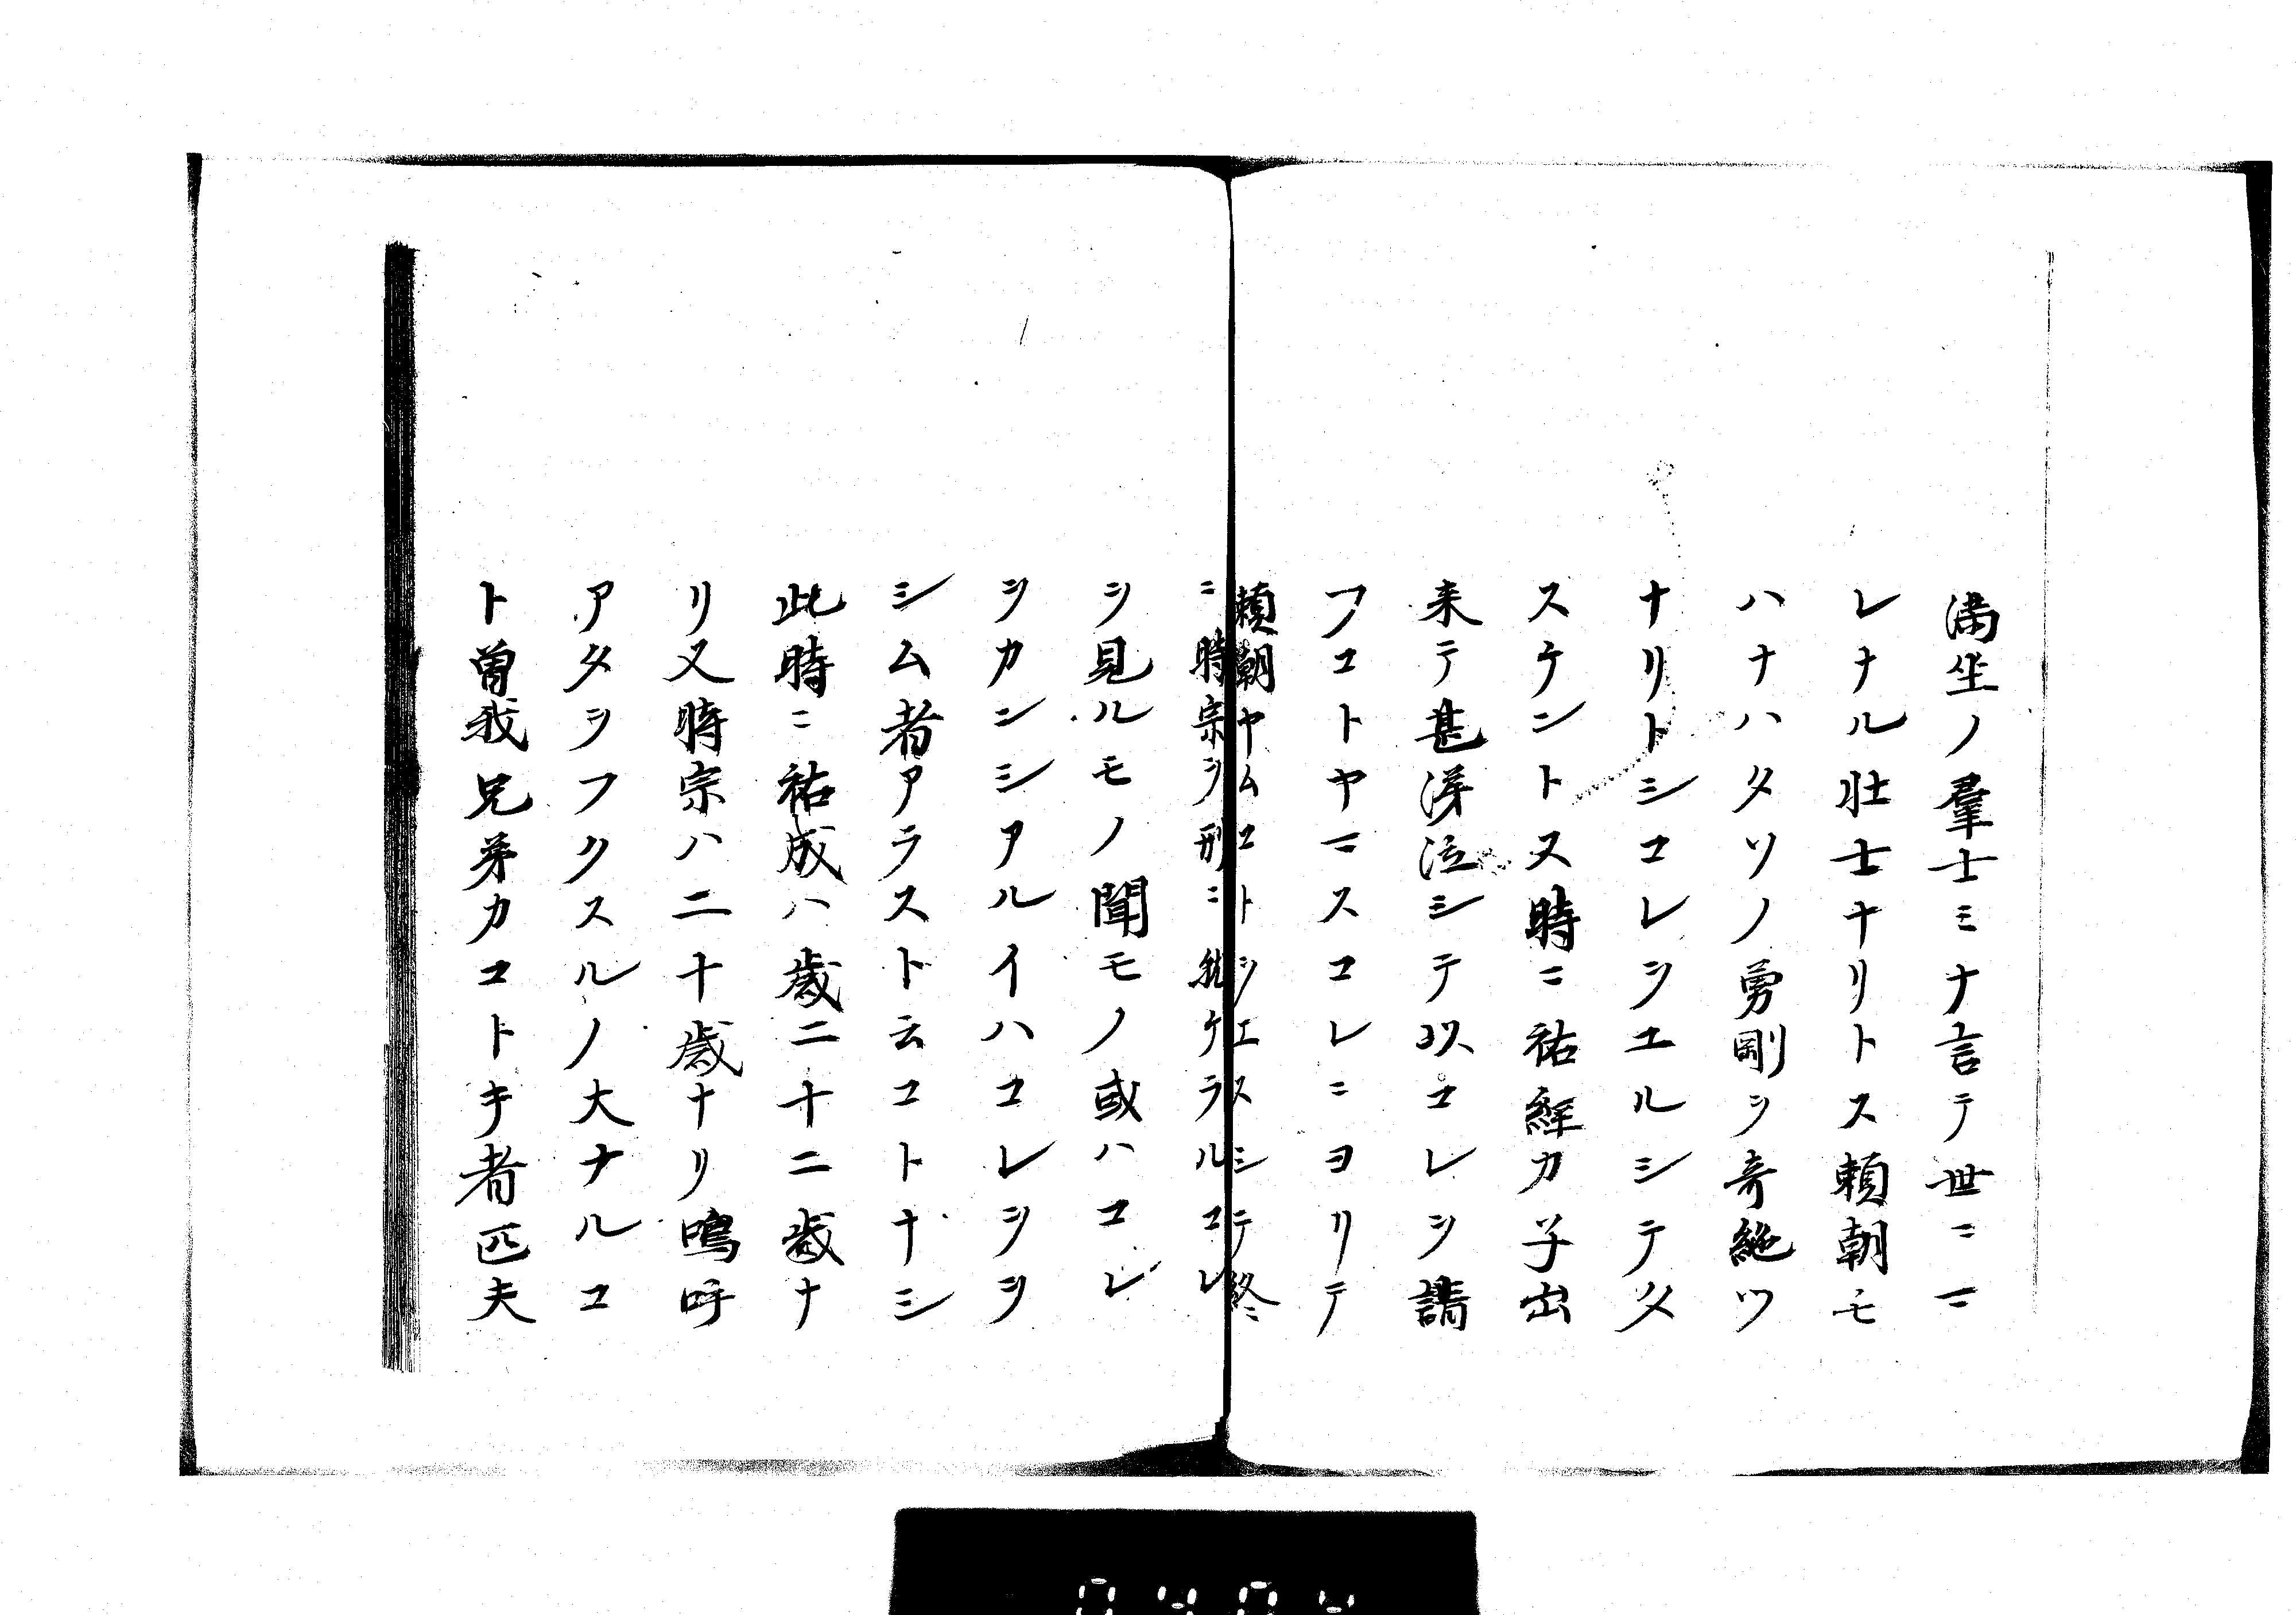 満坐ノ羣士ミナ言テ世ニマ
レナル壮士ナリトス頼朝モ
ハナハタソノ勇剛ヲ奇絶ツ
ナリトシコレヲユルシテタ
スケント又時ニ祐経カ子出
来テ甚涕泣シテ以コレヲ請
フコトヤマスコレニヨリテ
頼朝ヤムコトヲエスシテ終
ニ時宗ヲ刑ニ就ケラルコレ
ヲ見ルモノ聞モノ或ハコレ
ヲカンシアルイハコレヲヲ
シム者アラスト云コトナシ
此時ニ祐成ハ歳二十二歳ナ
リ又時宗ハ二十歳ナリ嗚呼
アタヲフクスルノ大ナルコ
ト曽我兄弟カコトキ者匹夫